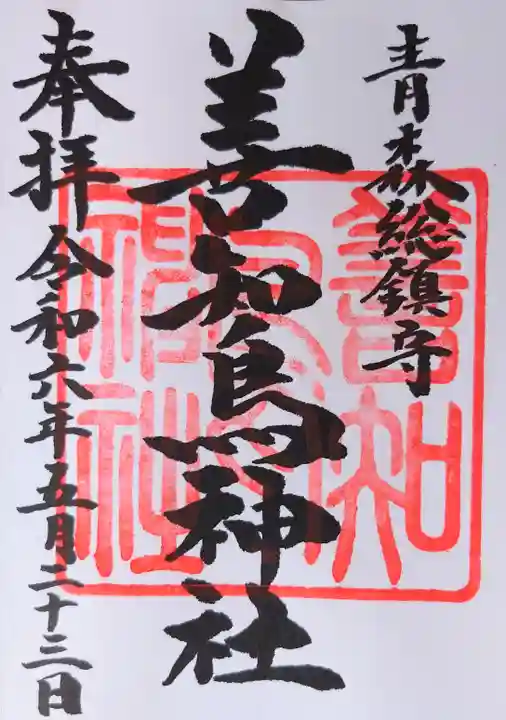 青森総鎮守
善知鳥神社
奉拝 令和六年五月二十三日
善知
鳥
神社